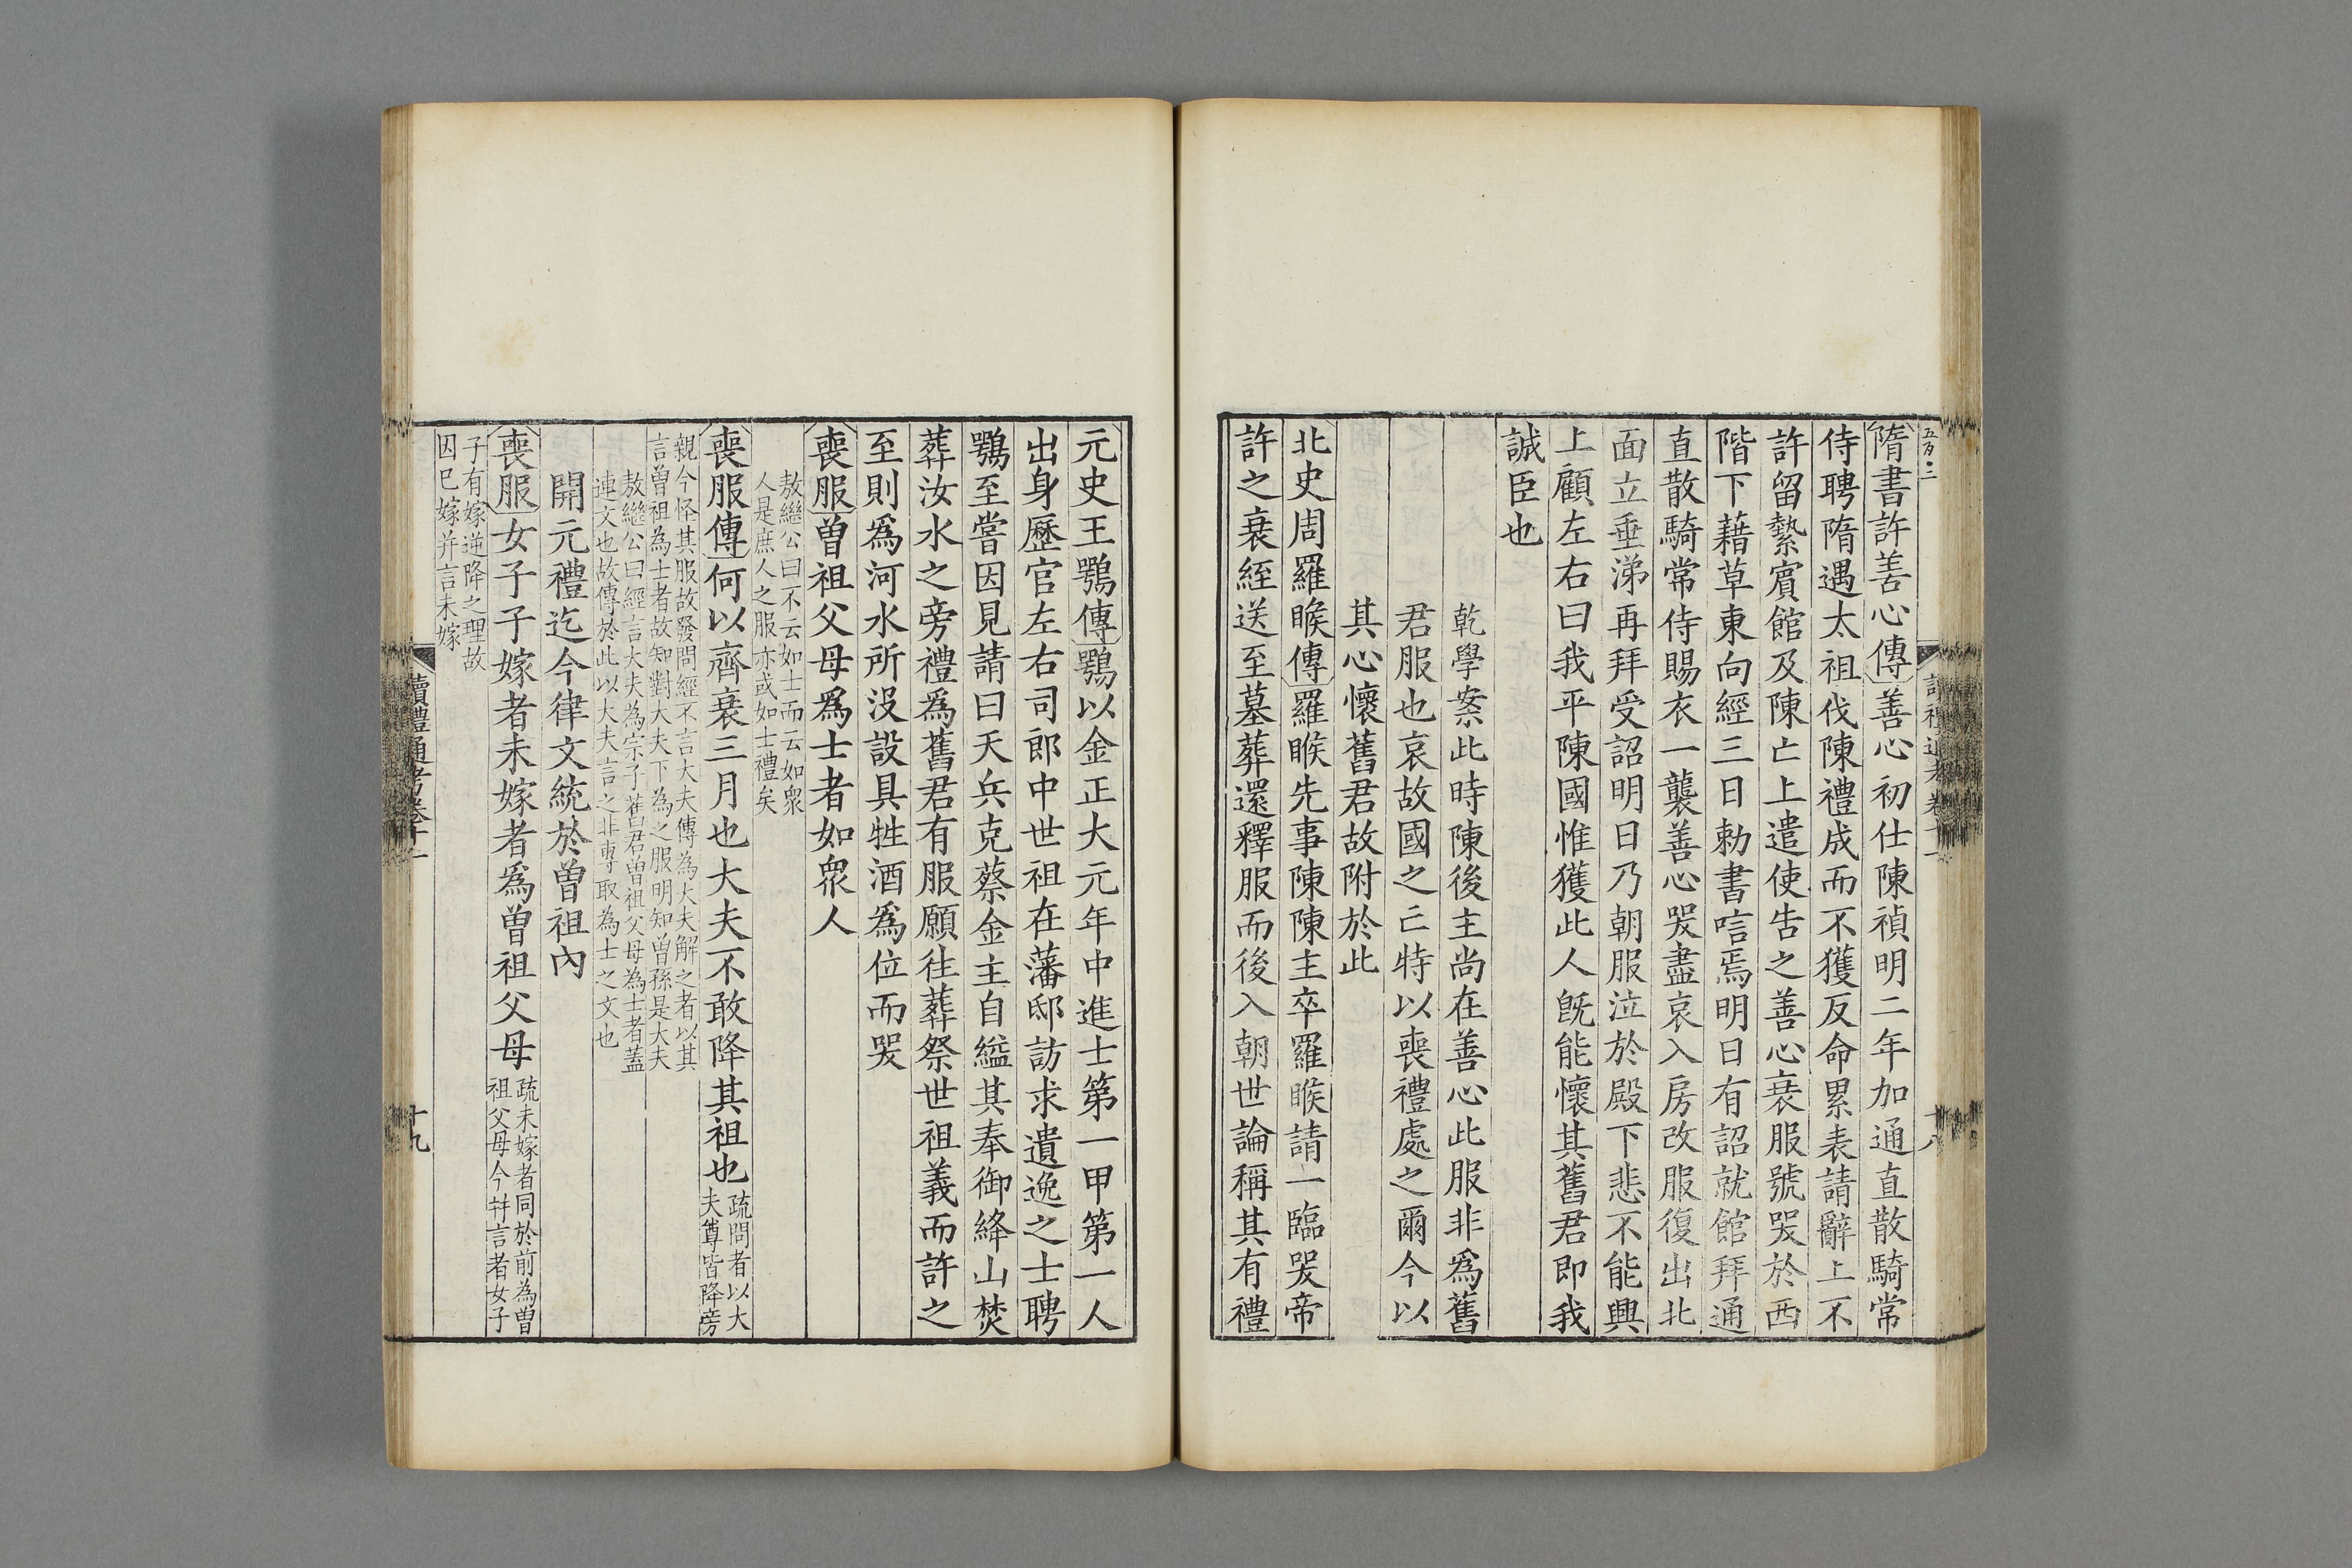 五百三
讀禮通考卷十一
十八
隋書許善心傳善心初仕陳禎明二年加通直散騎常
侍聘隋遇太祖伐陳禮成而不獲反命累表請辭上不
許留縶賓館及陳亡上遣使吿之善心衰服號哭於西
階下藉草東向經三日勅書唁焉明日有詔就館拜通
直散騎常侍賜衣一襲善心哭盡哀入房改服復出北
面立垂涕再拜受詔明日乃朝服泣於殿下悲不能興
上顧左右曰我平陳國惟獲此人旣能懷其舊君卽我
誠臣也
乾學案此時陳後主尚在善心此服非爲舊
君服也哀故國之亡特以喪禮處之爾今以
其心懷舊君故附於此
北史周羅睺傳羅睺先事陳陳主卒羅睺請一臨哭帝
許之衰絰送至墓葬還釋服而後入朝世論稱其有禮
元史王鶚傳鶚以金正大元年中進士第一甲第一人
出身歷官左右司郎中世祖在藩邸訪求遺逸之士聘
鶚至嘗因見請曰天兵克蔡金主自縊其奉御絳山焚
葬汝水之旁禮爲舊君有服願往葬祭世祖義而許之
至則爲河水所没設具牲酒爲位而哭
喪服曾祖父母爲士者如眾人
敖繼公曰不云如士而云如眾
人是庶人之服亦或如士禮矣
喪服傳何以齊衰三月也大夫不敢降其祖也
疏問者以大
夫尊皆降旁
親今怪其服故發問經不言大夫傳為大夫解之者以其
言曾祖為士者故知對大夫下為之服明知曾孫是大夫
敖繼公曰經言大夫為宗子舊君曾祖父母為士者蓋
連文也故傳於此以大夫言之非專取為士之文也
開元禮迄今律文統於曾祖內
喪服女子子嫁者未嫁者爲曾祖父母
疏未嫁者同於前為曾
祖父母今幷言者女子
子有嫁逆降之理故
因已嫁并言未嫁
讀禮通考卷十一
十九